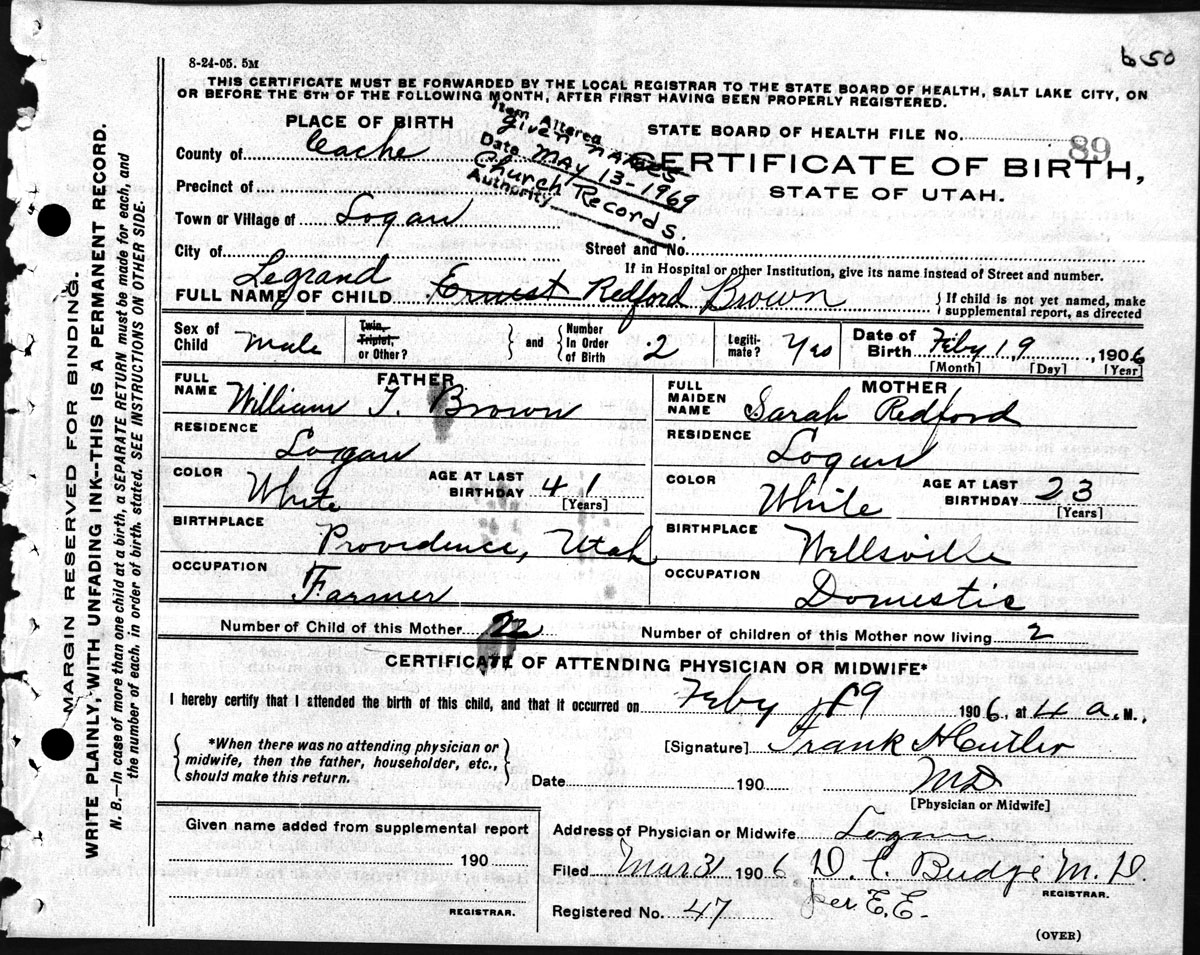 b50
8-24-05. 5M
THIS CERTIFICATE MUST BE FORWARDED BY THE LOCAL REGISTRAR TO THE STATE BOARD OF HEALTH, SALT LAKE CITY, ON
OR BEFORE THE 5TH OF THE FOLLOWING MONTH, AFTER FIRST HAVING BEEN PROPERLY REGISTERED.
MARGIN RESERVED FOR BINDING.
WRITE PLAINLY, WITH UNFADING INK--THIS IS A PERMANENT RECORD.
N. B.—In case of more than one child at a birth, a SEPARATE RETURN must be made for each, and
the number of each, in order of birth, stated. SEE INSTRUCTIONS ON OTHER SIDE.
Item Altered given names
Date MAY 13-1969
Church Records.
Authority
PLACE OF BIRTH
STATE BOARD OF HEALTH FILE No. 89
County of Cache
CERTIFICATE OF BIRTH,
Precinct of
STATE OF UTAH.
Town or Village of Logan
City of
Street and No.
If in Hospital or other Institution, give its name instead of Street and number.
Legrand
FULL NAME OF CHILD Ernest Redford Brown
If child is not yet named, make
supplemental report, as directed
Sex of Child Male
Twin, Triplet, or Other?
and
Number In Order of Birth 2
Legiti-mate? Yes
Date of Birth Feby 19, 1906
[Month] [Day] [Year]
FATHER
FULL NAME William T. Brown
RESIDENCE
Logan
COLOR White
AGE AT LAST BIRTHDAY 41
[Years]
BIRTHPLACE
Providence, Utah
OCCUPATION
Farmer
MOTHER
FULL MAIDEN NAME Sarah Redford
RESIDENCE
Logan
COLOR White
AGE AT LAST BIRTHDAY 23
[Years]
BIRTHPLACE
Wellsville
OCCUPATION
Domestic
Number of Child of this Mother
Number of children of this Mother now living 2
CERTIFICATE OF ATTENDING PHYSICIAN OR MIDWIFE*
I hereby certify that I attended the birth of this child, and that it occurred on Feby 19 1906, at 4 a. M.,
*When there was no attending physician or
midwife, then the father, householder, etc.,
should make this return.
[Signature] Frank H Cutler
Date 190
MD
[Physician or Midwife]
Given name added from supplemental report
190
REGISTRAR.
Address of Physician or Midwife Logan
Filed Mar 31 1906 D. C. Budge M. D.
REGISTRAR.
Registered No. 47
per E.E.
(OVER)